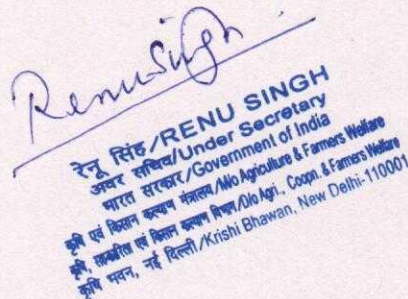 Renu Singh
रेनू सिंह/RENU SINGH
अवर सचिव/Under Secretary
भारत सरकार/Government of India
कृषि एवं किसान कल्याण मंत्रालय/M/o Agriculture & Farmers Welfare
कृषि, सहकारिता एवं किसान कल्याण विभाग/D/o Agri., Coopn. & Farmers Welfare
कृषि भवन, नई दिल्ली/Krishi Bhawan, New Delhi-110001